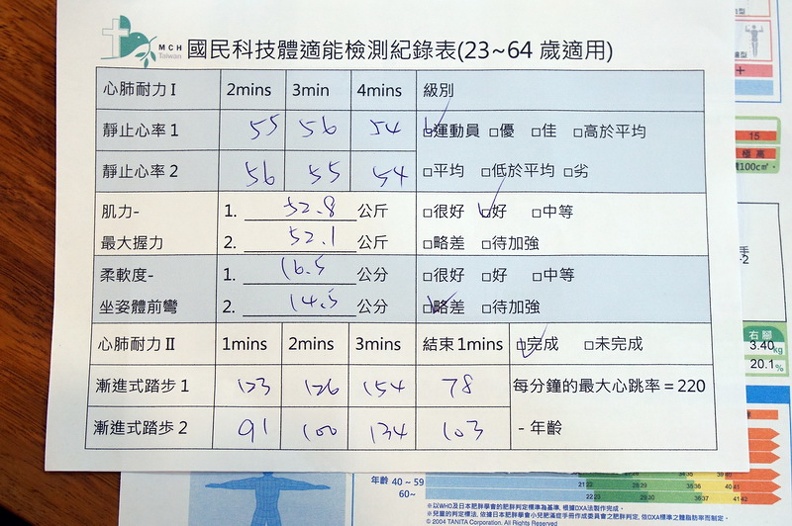 MCH
Taiwan
國民科技體適能檢測紀錄表(23~64 歲適用)
心肺耐力 I 2mins 3min 4mins 級別
靜止心率 1 55 56 54 ☑運動員 □優 □佳 □高於平均
靜止心率 2 56 55 54 □平均 □低於平均 □劣
肌力- 1. 52.8 公斤 □很好 ☑好 □中等
最大握力 2. 52.1 公斤 □略差 □待加強
柔軟度- 1. 16.5 公分 □很好 □好 □中等
坐姿體前彎 2. 14.5 公分 ☑略差 □待加強
心肺耐力 II 1mins 2mins 3mins 結束 1mins ☑完成 □未完成
漸進式踏步 1 123 126 154 78 每分鐘的最大心跳率＝220
漸進式踏步 2 91 100 134 103 - 年齡
15
極高
100c㎡.
手
-2
右腳
3.40kg
20.1%
年齡 40 ~ 59
60~
※以WHO及日本肥胖學會的肥胖判定標準為基準, 根據DXA法製作完成。
© 2004 TANITA Corporation. All Rights Reserved